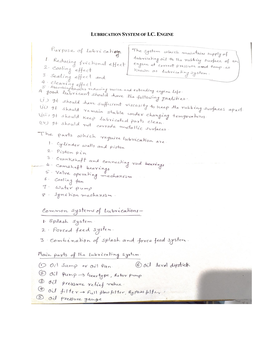 LUBRICATION SYSTEM OF I.C. ENGINE
Purpose of lubrication
1 Reducing frictional effect
2 Cooling effect
3 Sealing effect and
4 Cleaning effect
The system which maintains supply of
lubricating oil to the
at correct pressure
as lubricating system.
A good lubricant should have the following qualities:
(i) It should have sufficient viscosity to keep the rubbing surfaces apart
(ii) It should remain stable under changing temperature
(iii) It should keep lubricated parts clean
(iv) It should not corrode metallic surfaces
The parts which require lubrication are:
1 Cylinder walls and piston
2 Piston pin
3 Crankshaft and connecting rod bearings
4 Camshaft bearings
5 Valve operating mechanism
6 Cooling fan
7 Water pump
8 Ignition mechanism
Common systems of lubrications:-
1 Splash system
2 Forced feed system
3 Combination of splash and force feed system
Main parts of the lubricating system
① Oil Sump or Oil Pan
⑥ Oil level dipstick
② Oil Pump → Geartype, Rotor pump
③ Oil pressure relief valve
④ Oil filter → Full flow filter, bypass filter
⑤ Oil pressure gauge